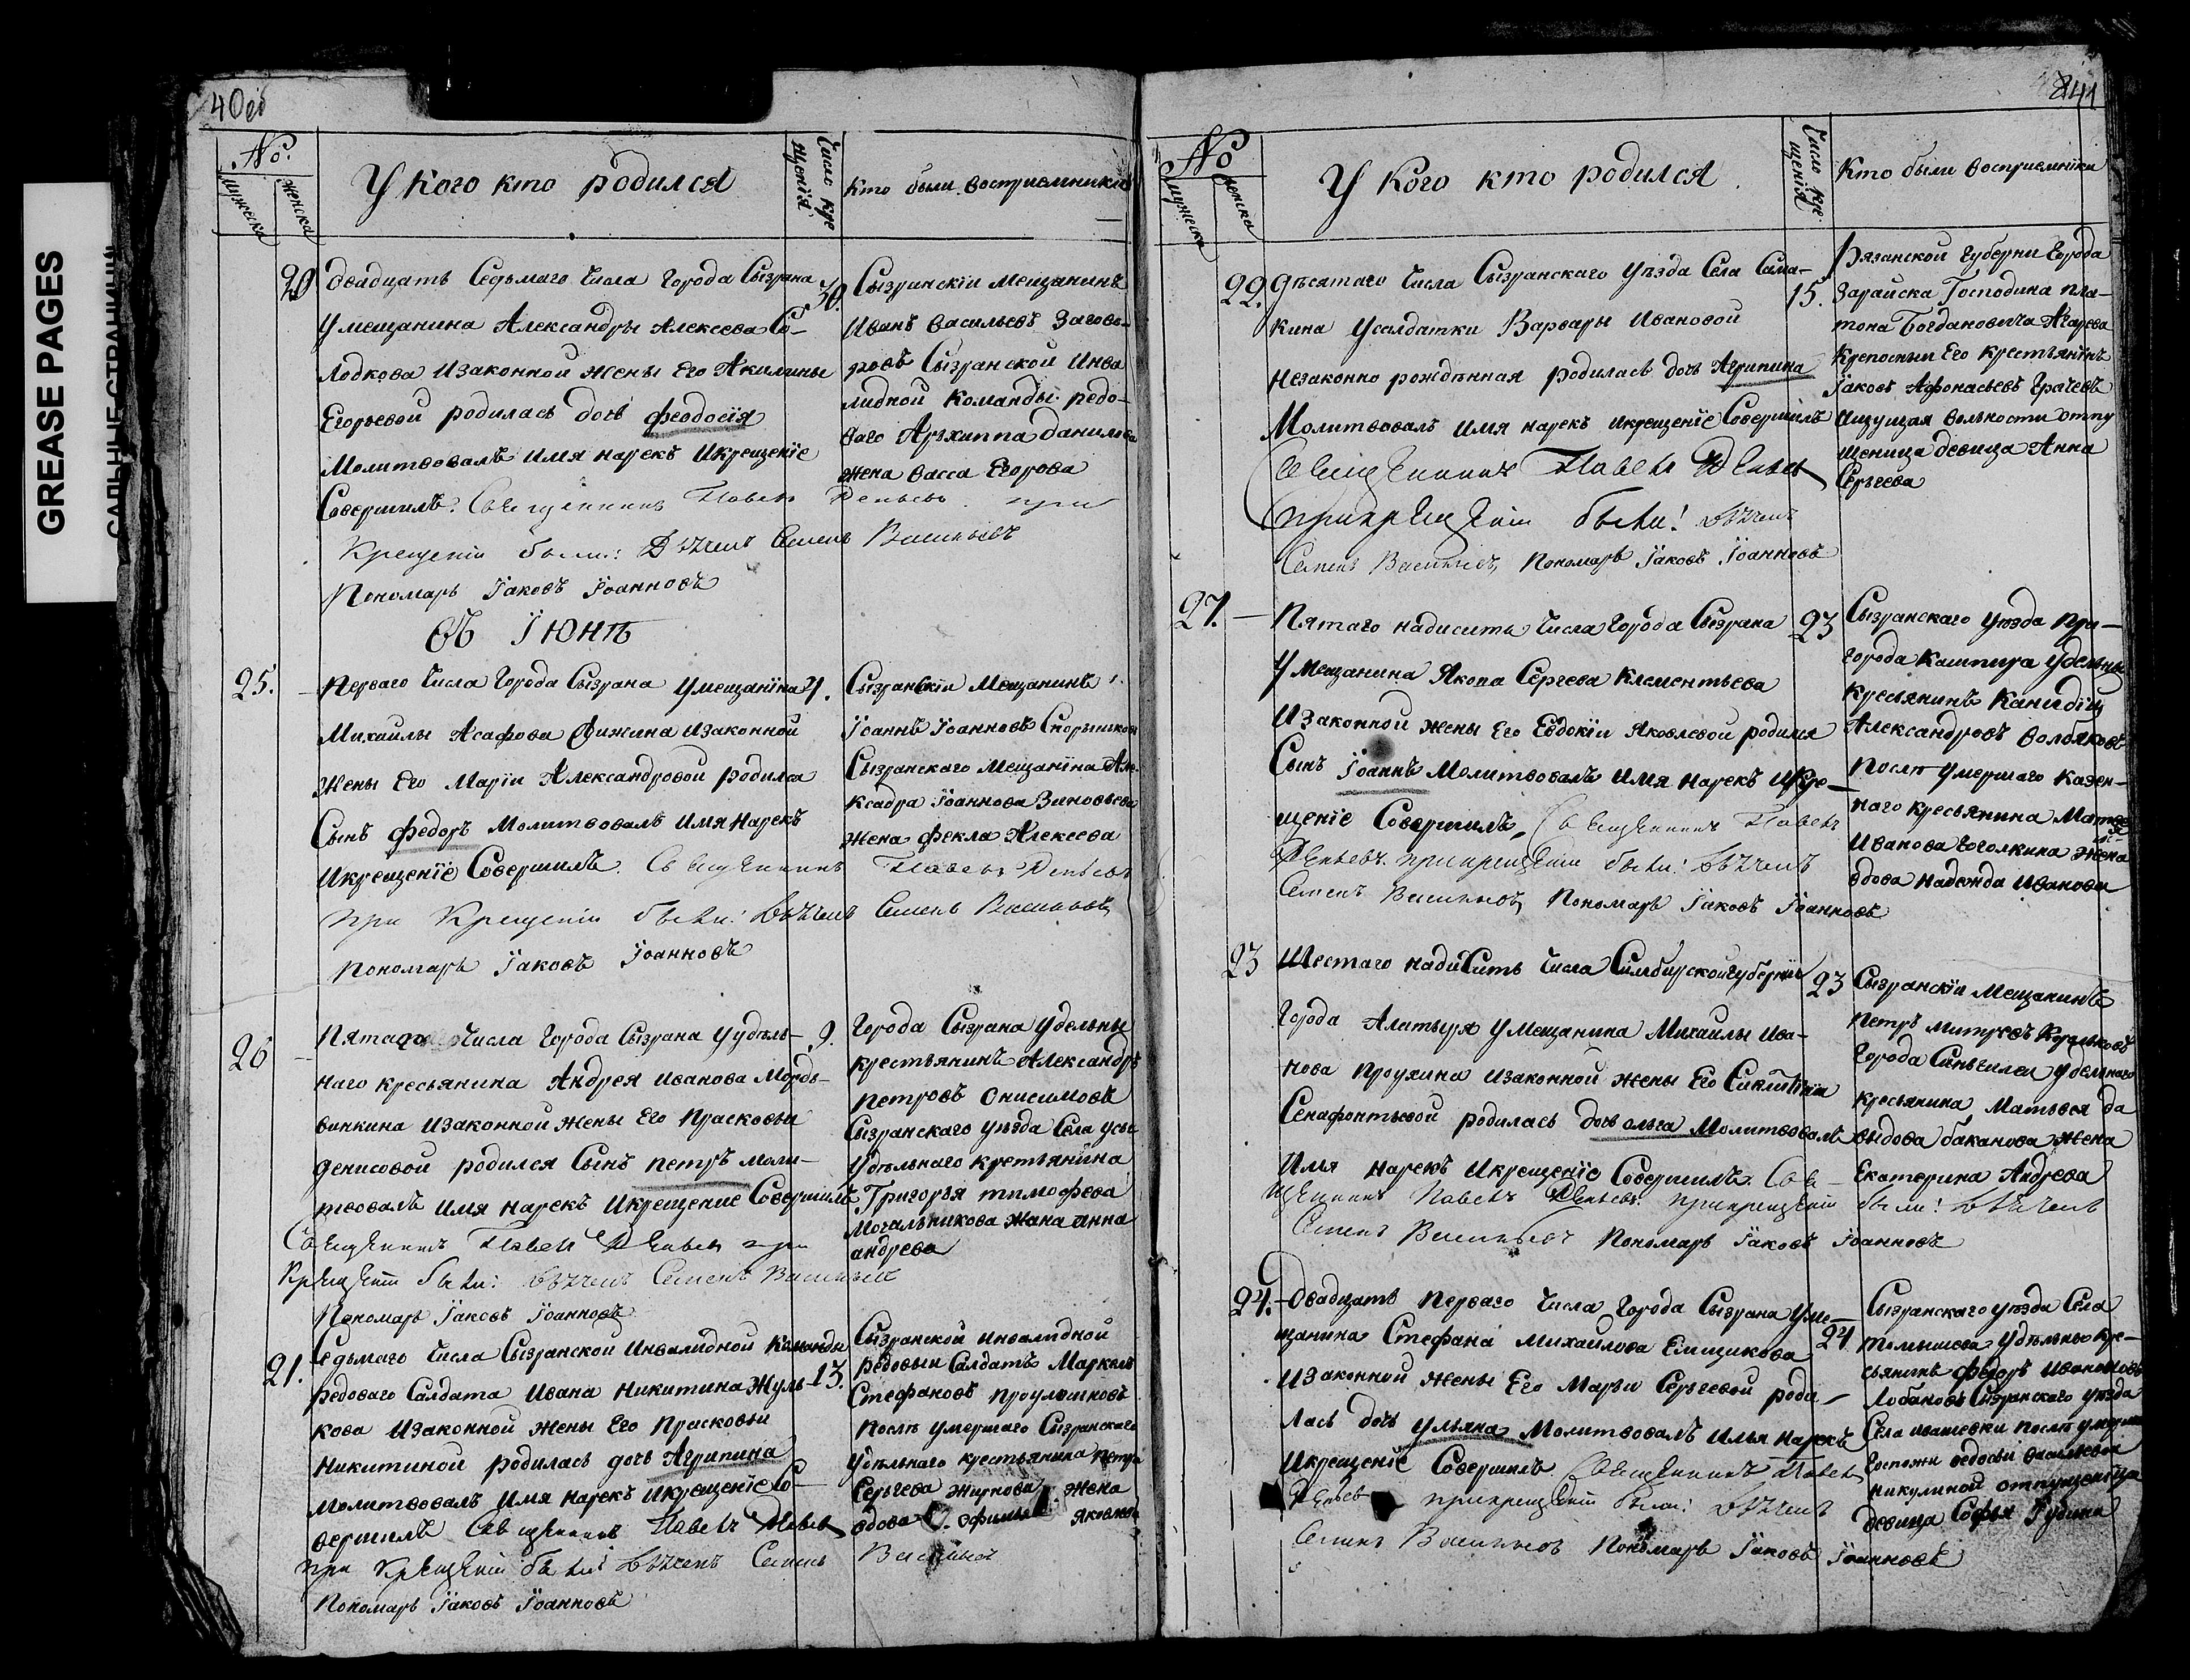 GREASE PAGES
САЛЬНЫЕ СТРАНИЦЫ
40об
No.
мужеска
женска
У кого кто родился
Число кре
щенія
кто были восприемники
20 двадцать Седьмаго Числа Города Сызрана 30.
У мещанина Александры Алексеева Со-
лодкова Изаконной жены Его Акилины
Егорьевой родилась дочь феодосія
Молитвовалъ имя нарекъ Икрещеніе
Совершилъ. Священникъ Павелъ при
Крещеніи были: Семенъ Васильевъ
Пономарь Іаковъ Іоанновъ
Сызранскіи Мещанинъ
Иванъ Васильевъ Загово-
ровъ Сызранской Инва
лидной Команды редо-
ваго Архиппа данилова
жена Васса Егорова
Въ Іюнѣ
25. Перваго Числа Города Сызрана Умещанина
Михаилы Асафова Изаконной
Жены Его Маріи Александровой родился
Сынъ федоръ Молитвовалъ Имя Нарекъ
Икрещеніе Совершилъ. Священникъ Павелъ
при Крещеніи были: Семенъ Васильевъ
Пономарь Іаковъ Іоанновъ
Сызранскіи Мещанинъ
Іоаннъ Іоанновъ
Сызранскаго Мещанина Але-
ксадра Іоаннова Зиновьева
жена фекла Алексеева
26 Пятаго Числа Города Сызрана Уудѣль- 9.
наго кресьянина Андрея Иванова Мордь-
винкина Изаконной жены Его Прасковьи
денисовой родился Сынъ петръ моли-
твовалъ имя нарекъ Икрещение Совершилъ
Священникъ Павелъ при
Крещеніи были: Семенъ Васильевъ
Пономарь Іаковъ Іоанновъ
Города Сызрана Удельны
крестьянинъ Александръ
петровъ Онисимовъ
Сызранскаго уѣзда Села
Удѣльнаго
Григорья тимофева
Мочальникова жана анна
андрева
21. Седьмаго Числа Сызранской Инвалидной Команды 13.
редоваго Салдата Ивана Никитина Жуль-
кова Изаконной жены Его Прасковьи
Никитиной родилась дочь Агрипина
молитвовалъ Имя нарекъ Икрещеніе Со-
вершилъ Священникъ Павелъ
при Крещеніи были: Семенъ Васильевъ
Пономарь Іаковъ Іоанновъ
Сызранской инвалидной
редовыи Салдатъ Маркелъ
Стефановъ
послѣ умершаго Сызранскаго
Удѣльнаго крестьянина петра
Сергѣева Жирнова жена
вдова Яковлева
41
No
мужеска
женска
У кого кто родился
Число кре
щенія
Кто были восприемники
22. дѣсятаго Числа Сызранскаго Уѣзда Села Сама- 15.
кина Усалдатки Варвары Ивановой
незаконно рождѣнная родилась дочь Агрипина
Молитвовалъ имя нарекъ икрещеніе Совершилъ
Священникъ Павелъ
прикрещеніи были!
Семенъ Васильевъ, Пономарь Іаковъ Іоанновъ
Рязанской Губерни Города
Зарайска Господина пла-
тона Богдановича Агарева
крепосныи Его крестьянинъ
Іаковъ Афонасьевъ Грачевъ
Ищущая вольности отпу
щеница девица Анна
Серьгева
27. Пятаго надисить Числа Города Сызрана 23
У Мещанина Якова Сергева Клементьева
Изаконной жены Его Евдокіи Яковлевой родился
Сынъ Іоаннъ Молитвовалъ Имя Нарекъ Икре-
щеніе Совершилъ, Священникъ Павелъ
прикрещеніи были:
Семенъ Васильевъ, Пономарь Іаковъ Іоанновъ
Сызранскаго Уѣзда При-
города Кашпира Удельны
кресьянинъ
Александровъ
послѣ Умершаго Казен-
наго кресьянина
Иванова Гоголкина жена
вдова надежда Иванова
23 Шестаго надисить Числа Симбирскойгуберніи 23
Города Алатыря У Мещанина Михаилы Ива-
нова Проухина Изаконной жены Его
Сенафонтьевой родилась дочь ольга Молитвовалъ
Имя нарекъ Икрещеніе Совершилъ. Свя-
щенникъ Павелъ прикрещеніи были:
Семенъ Васильевъ Пономарь Іаковъ Іоанновъ
Сызранскіи Мещанинъ
Петръ митревъ Корольковъ
Города Удельнаго
кресьянина Матьвея да
выдова баканова жена
Екатерина Андрева
24. Двадцать перваго Числа Города Сызрана Уме- 24
щанина Стефана Михаилова
Изаконной жены Его Марьи Серьгевой роди-
лась дочь Ульяна Молитвовалъ Имя нарекъ
Икрещеніе Совершилъ Священникъ Павелъ
прикрещеніи были:
Семенъ Васильевъ Пономарь Іаковъ Іоанновъ
Сызранскаго уѣзда Села
томышева Удѣльны кре-
сьянинъ федоръ Ивановъ
Лобановъ Сызранскаго уѣзда
Села ивашевки послѣ умершей
Госпожи федосьи Васильевой
никулиной отпущеница
девица Софья